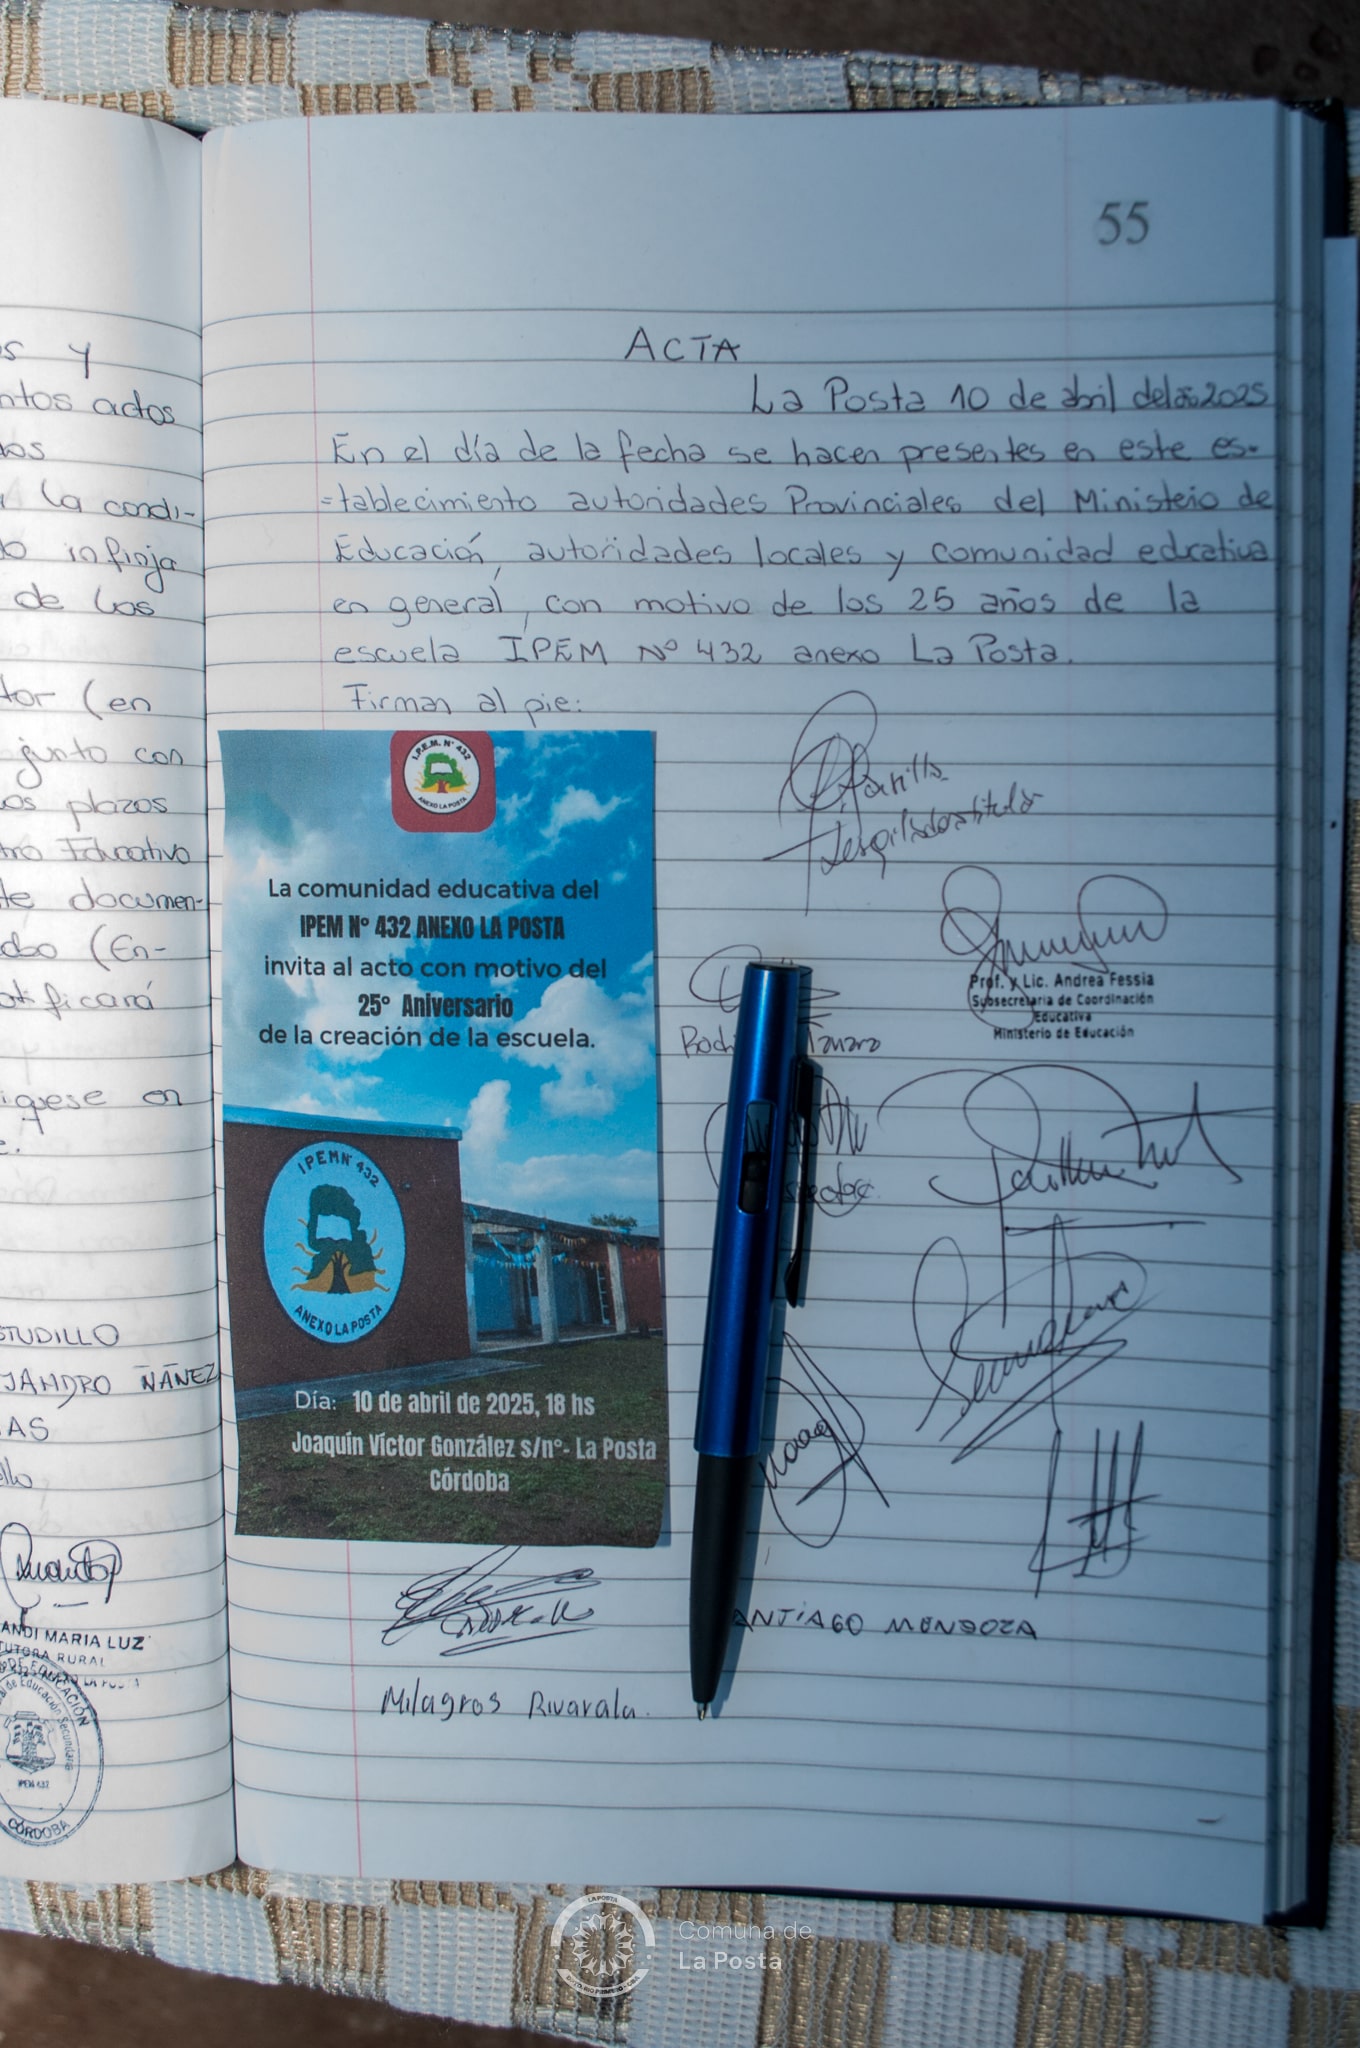 55
ACTA
La Posta 10 de abril del año 2025
En el día de la fecha se hacen presentes en este es-
=tablecimiento autoridades Provinciales del Ministerio de
Educación, autoridades locales y comunidad educativa
en general, con motivo de los 25 años de la
escuela IPEM Nº 432 anexo La Posta.
Firman al pie:
I.P.E.M. Nº 432
ANEXO LA POSTA
La comunidad educativa del
IPEM Nº 432 ANEXO LA POSTA
invita al acto con motivo del
25° Aniversario
de la creación de la escuela.
IPEM Nº 432
ANEXO LA POSTA
Día: 10 de abril de 2025, 18 hs
Joaquín Víctor González s/n°- La Posta
Córdoba
Prof. y Lic. Andrea Fessia
Subsecretaria de Coordinación
Educativa
Ministerio de Educación
ANTIAGO MENDOZA
Milagros Rivarola.
os y
ntos actos
los
la condi-
infinja
de los
tor (en
junto con
os plazos
Educativo
te documen-
(En-
ificará
iquese en
TUDILLO
JANDRO ÑÁÑEZ
AS
ANDI MARIA LUZ
TUTORA RURAL
IPEM 432
CÓRDOBA
LA POSTA
Comuna de
La Posta